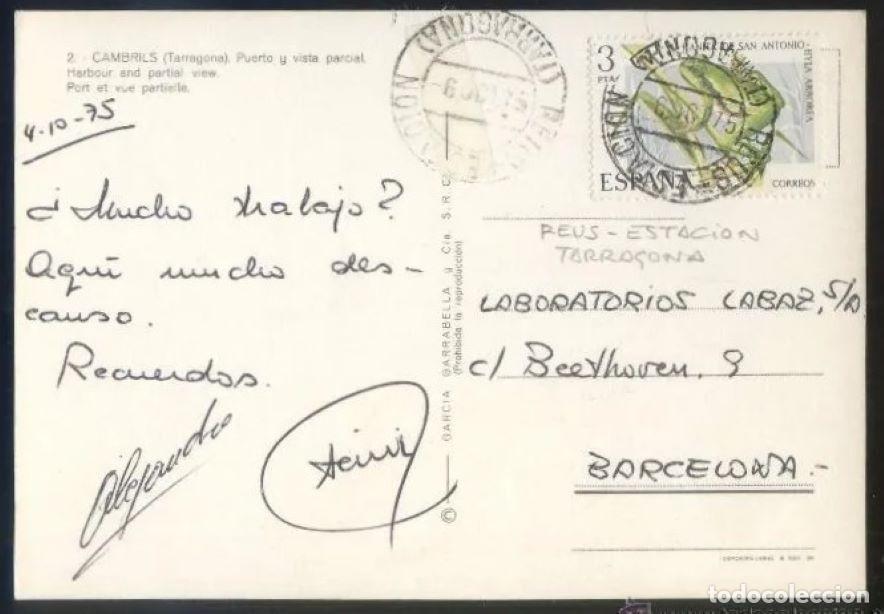 2. - CAMBRILS (Tarragona). Puerto y vista parcial.
Harbour and partial view.
Port et vue partielle.
4-10-75
¿Mucho trabajo?
Aquí mucho des-
canso.
Recuerdos.
Alejandro
© GARCIA GARRABELLA y Cía S.R.C.
(Prohibida la reproducción)
(TARRAGONA)
3
PTAS
RANITA DE SAN ANTONIO - HYLA ARBOREA
ESPAÑA
CORREOS
REUS-ESTACION
(TARRAGONA)
REUS - ESTACION
TARRAGONA
LABORATORIOS LABAZ, S/A
c/ Beethoven, 9
BARCELONA.-
todocoleccion